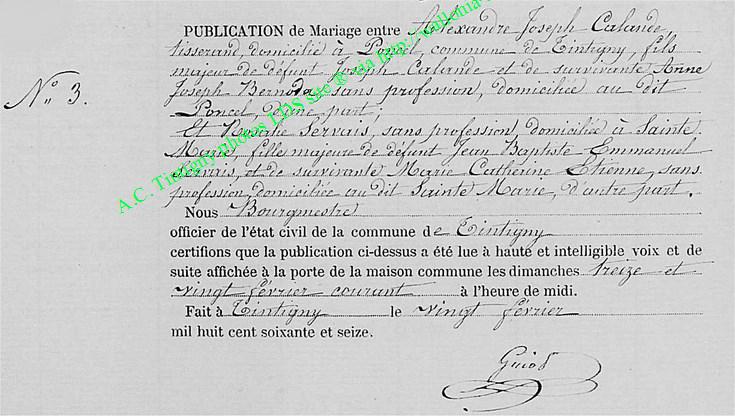 PUBLICATION de Mariage entre Alexandre Joseph Calande
tisserand, domicilié à Poncel, commune de Tintigny, fils
majeur de défunt Joseph Calande et de survivante Anne
N° 3.
Joseph sans profession, domiciliée au dit
Poncel d'une part;
Et Rosalie Servais, sans profession, domiciliée à Sainte
Marie, fille majeure de défunt Jean Baptiste Emmanuel
Servais, et de survivante Marie Catherine Etienne, sans
profession, domiciliée au dit Sainte Marie, d'autre part.
Nous Bourgmestre
officier de l'état civil de la commune de Tintigny
certifions que la publication ci-dessus a été lue à haute et intelligible voix et de
suite affichée à la porte de la maison commune les dimanches treize et
vingt février courant à l'heure de midi.
Fait à Tintigny le vingt février
mil huit cent soixante et seize.
A.C. Tintigny photos LDS site ® via http://